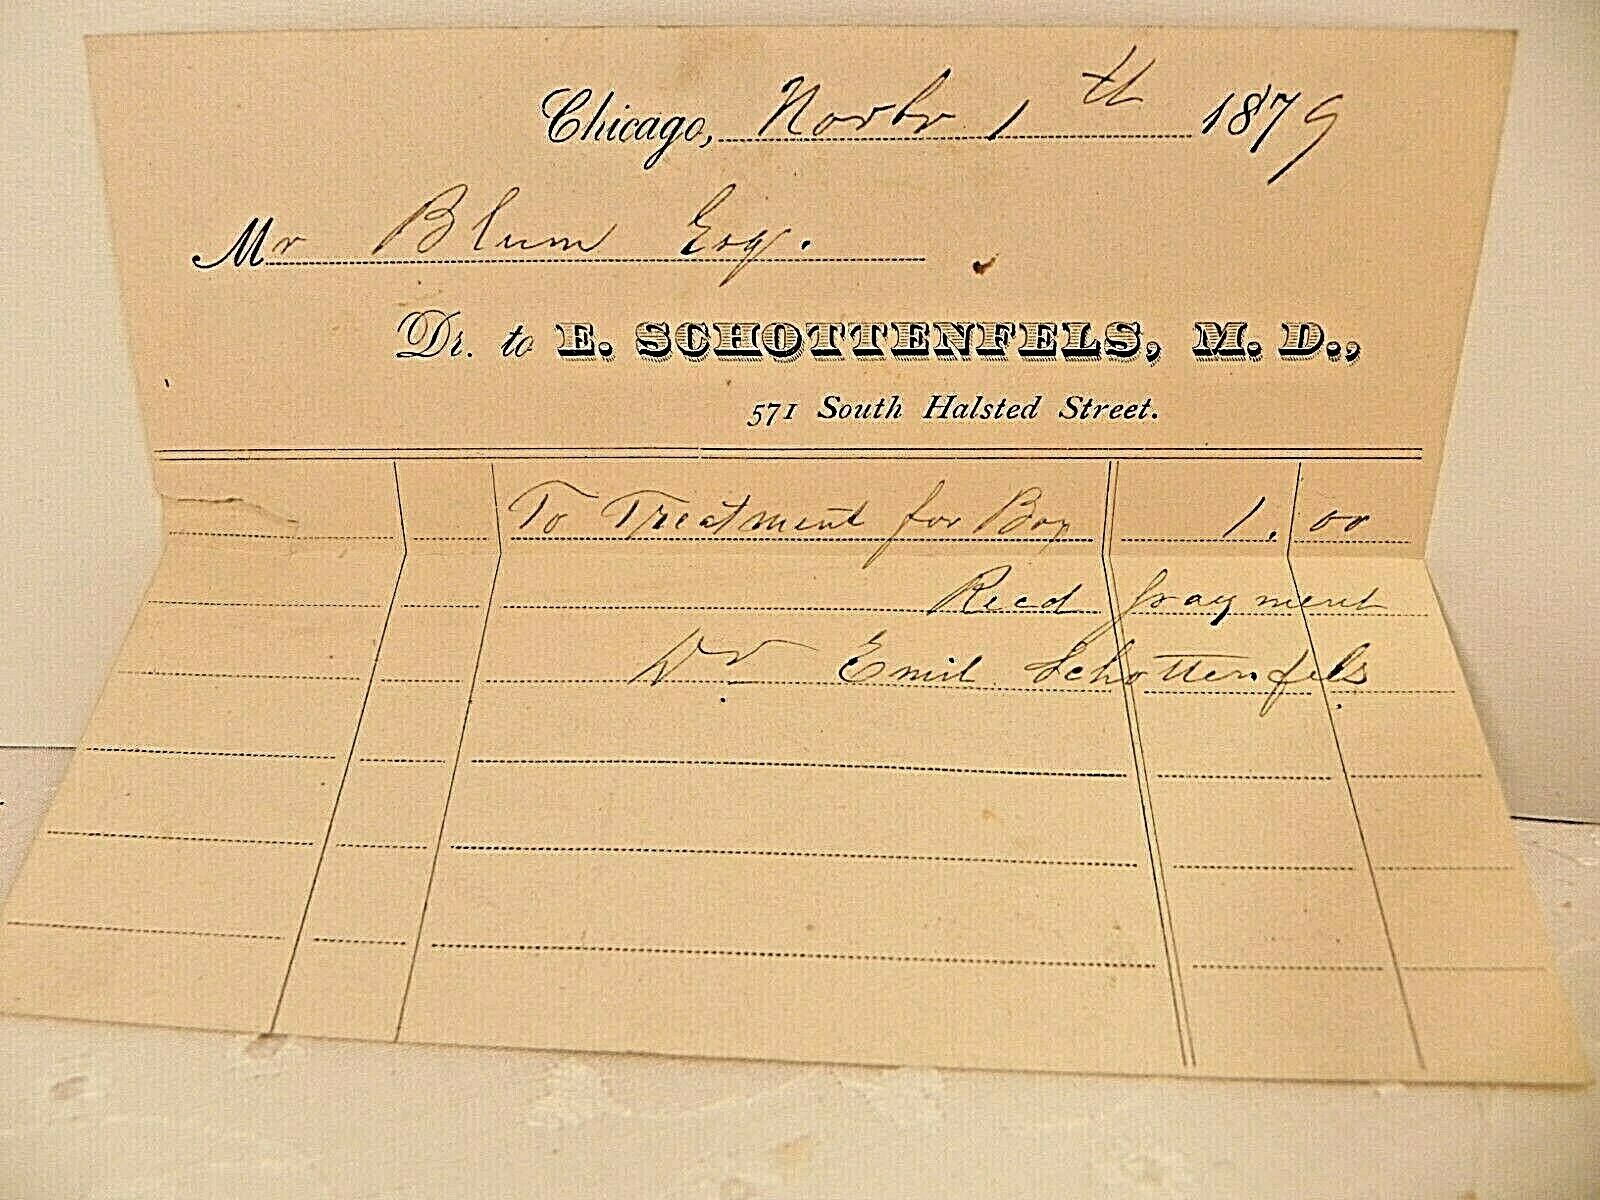 Chicago, Novbr 1th 1879
Mr Blum Esq.
Dr. to E. SCHOTTENFELS, M. D.,
571 South Halsted Street.
To Treatment for Boy 1.00
Recd payment
Dr Emil Schottenfels.